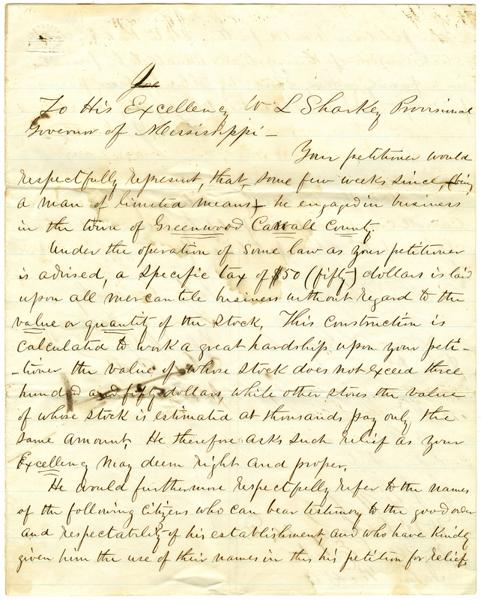 To His Excellency W L Sharkey Provisional
Governor of Mississippi -
Your petitioner would
respectfully represent, that, some few weeks since,
a man of limited means, he engaged in business
in the town of Greenwood Carroll County
Under the operation of some law as your petitioner
is advised, a specific tax of $50 (fifty) dollars is laid
upon all mercantile business without regard to the
value or quantity of the stock. This construction is
calculated to work a great hardship upon your peti-
-tioner the value of whose stock does not exceed three
hundred and fifty dollars, while other stores the value
of whose stock is estimated at thousands pay only the
same amount. He therefore asks such relief as your
Excellency may deem right and proper.
He would furthermore respectfully refer to the names
of the following citizens who can bear testimony to the good order
and respectability of his establishment, and who have kindly
given him the use of their names in this his petition for relief.